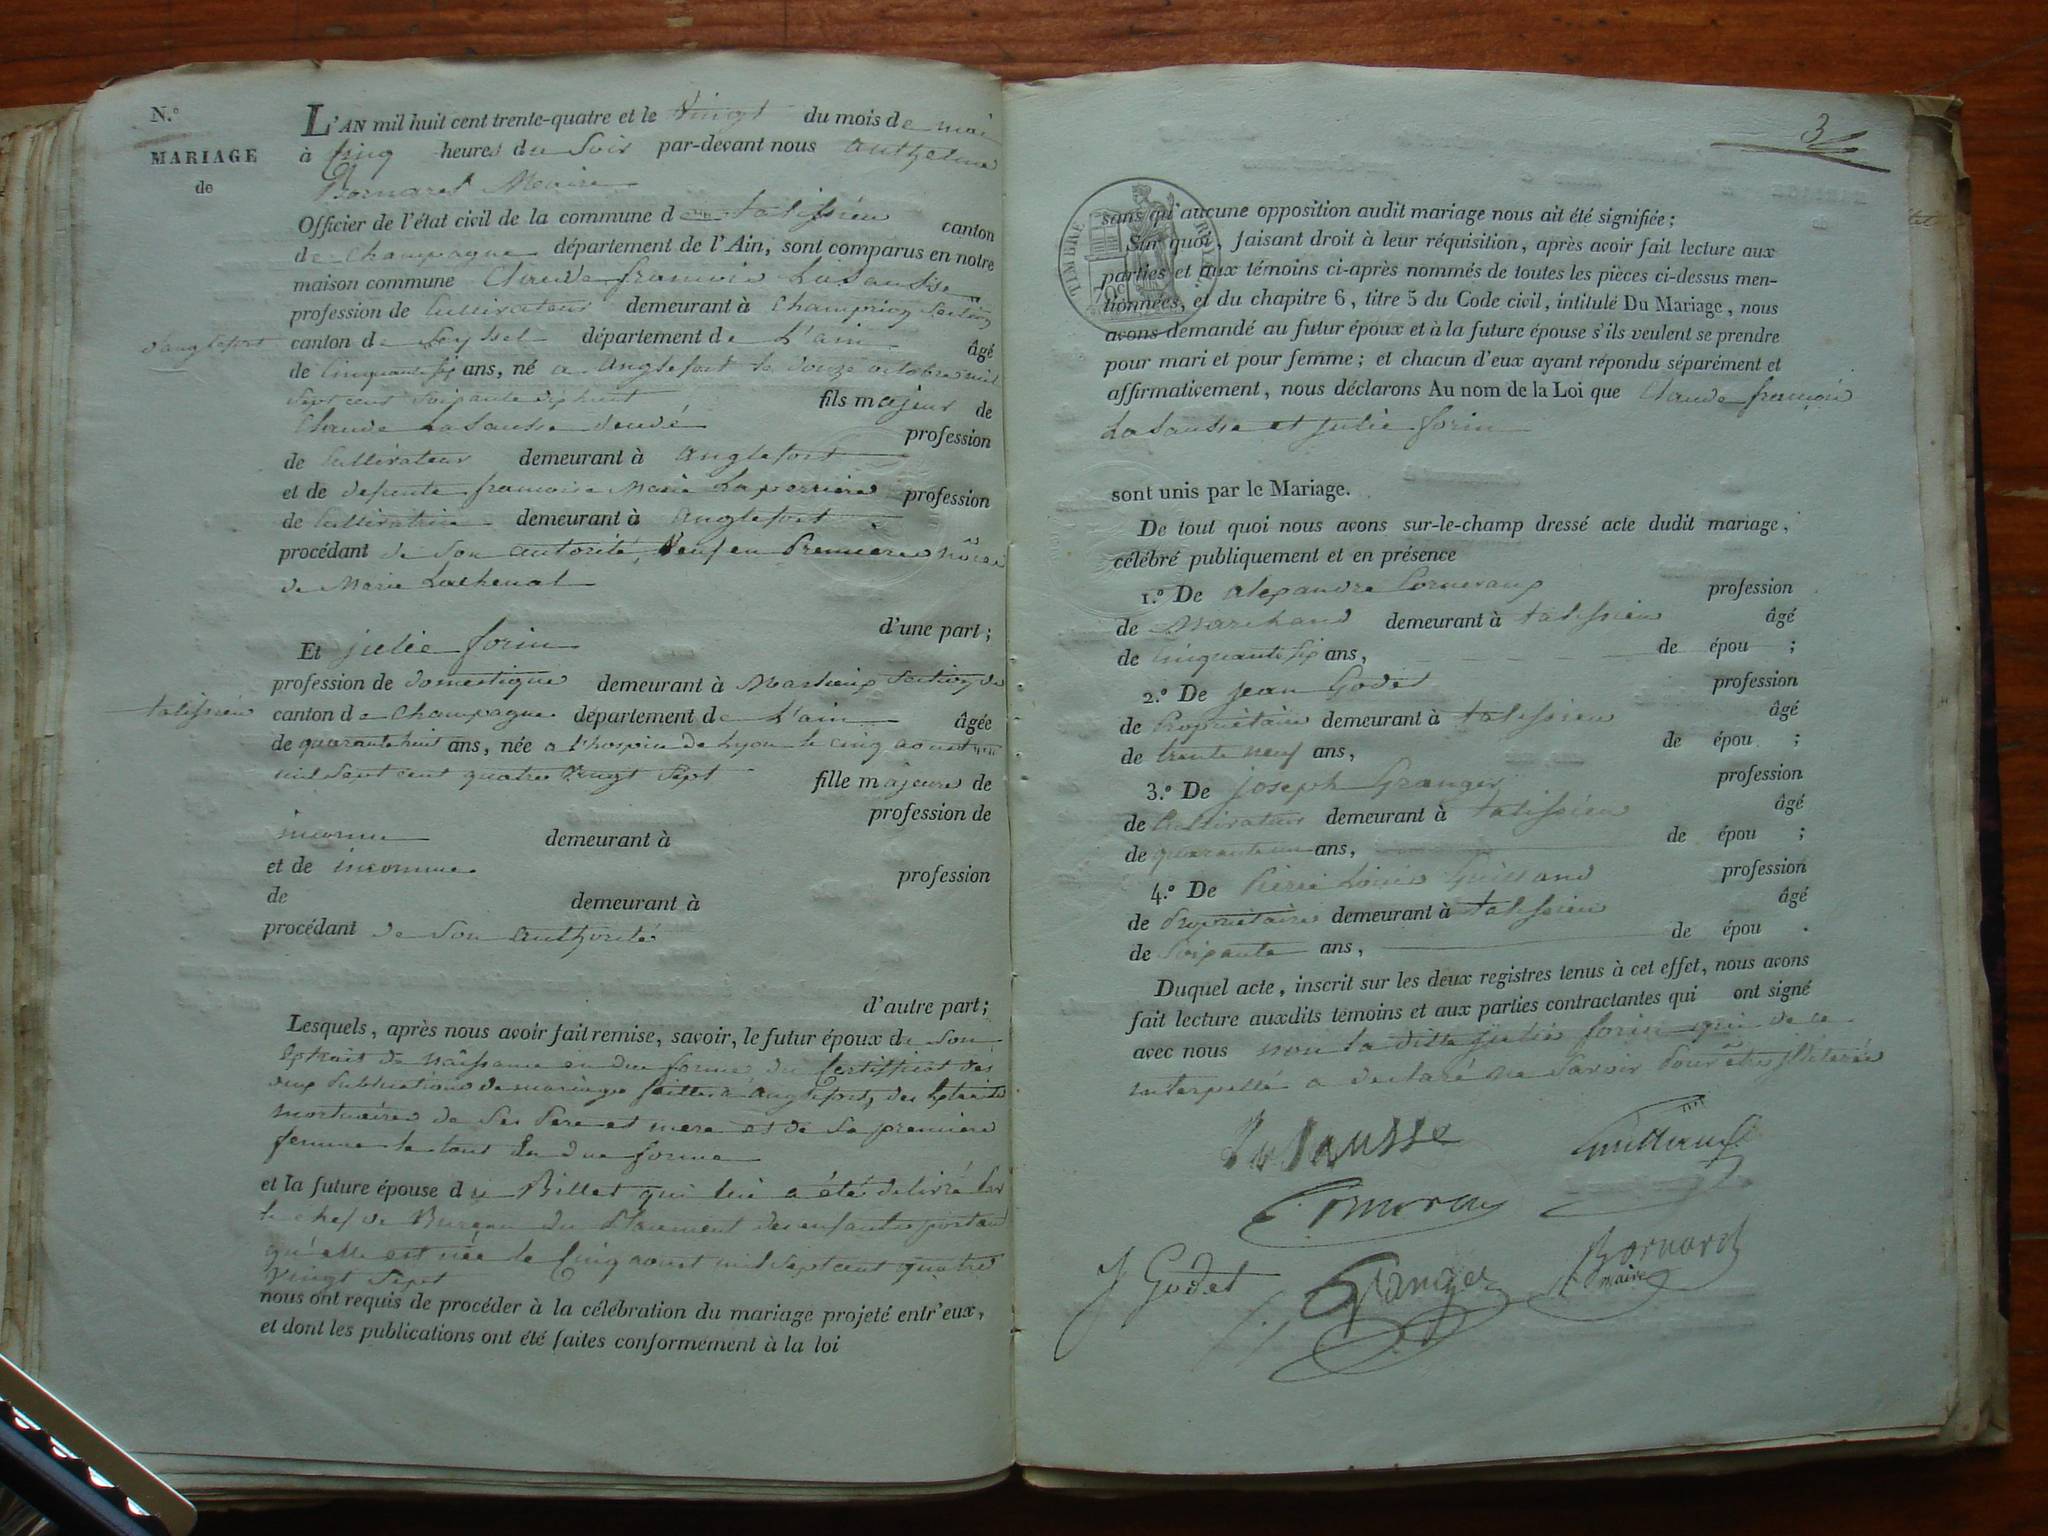 N.º
MARIAGE
de
L'AN mil huit cent trente-quatre et le vingt du mois de mai
à cinq heures du soir par-devant nous Anthelme
Bornaret Maire
Officier de l'état civil de la commune de talissieu canton
de Champagne département de l'Ain, sont comparus en notre
maison commune Claude françois LaSausse
profession de Cultivateur demeurant à Champrion Section
d'anglefort
canton de Seyssel département de L'ain âgé
de Cinquante six ans, né a Anglefort le douze octobre mil
sept cent soixante dix huit fils majeur de
Claude LaSausse profession
de Cultivateur demeurant à Anglefort
et de defunte francoise Marie Laperriere profession
de Cultivatrice demeurant à Anglefort
procédant de son autorité, Veuf en Premieres nôces
de Marie Lachenal
d'une part;
Et julie forin
profession de domestique demeurant à Marlieux Section de
talissieu
canton de Champagne département de L'ain âgée
de quarante huit ans, née a l'hospice de Lyon le cinq aoust
mil sept cent quatre vingt sept fille majeure de
profession de
inconnu demeurant à
et de inconnue profession
de demeurant à
procédant de son authorité
d'autre part;
Lesquels, après nous avoir fait remise, savoir, le futur époux de son
Extrait de naissance en due forme du Certifficat des
deux publications de mariage faittes a anglefort, des Extraits
mortuaires de ses Pere et mere et de sa premiere
femme le tout En due forme
et la future épouse du Billet qui lui a été delivré par
le chef de Bureau du Placement des enfants portant
qu'elle est née le Cinq aoust mil sept cent quatre
vingt sept
nous ont requis de procéder à la célébration du mariage projeté entr'eux,
et dont les publications ont été faites conformément à la loi
3
TIMBRE ROYAL
70c
sans qu'aucune opposition audit mariage nous ait été signifiée;
Sur quoi, faisant droit à leur réquisition, après avoir fait lecture aux
parties et aux témoins ci-après nommés de toutes les pièces ci-dessus men-
tionnées, et du chapitre 6, titre 5 du Code civil, intitulé Du Mariage, nous
avons demandé au futur époux et à la future épouse s'ils veulent se prendre
pour mari et pour femme; et chacun d'eux ayant répondu séparément et
affirmativement, nous déclarons Au nom de la Loi que Claude françois
LaSausse et julie forin
sont unis par le Mariage.
De tout quoi nous avons sur-le-champ dressé acte dudit mariage,
célébré publiquement et en présence
1.º De alexandre Corneraux profession
de Marchand demeurant à talissieu âgé
de Cinquante six ans, de épou ;
2.º De jean Godet profession
de Propriétaire demeurant à talissieu âgé
de trente neuf ans, de épou ;
3.º De joseph Granger profession
de Cultivateur demeurant à talissieu âgé
de quarante un ans, de épou ;
4.º De Pierre Louis Guilland profession
de Propriétaire demeurant à talissieu âgé
de Soixante ans, de épou .
Duquel acte, inscrit sur les deux registres tenus à cet effet, nous avons
fait lecture auxdits témoins et aux parties contractantes qui ont signé
avec nous non la ditte julie forin qui de ce
interpellé a declaré ne savoir pour être illéterée
LaSausse Guilland
J Godet Granger Bornaret
maire